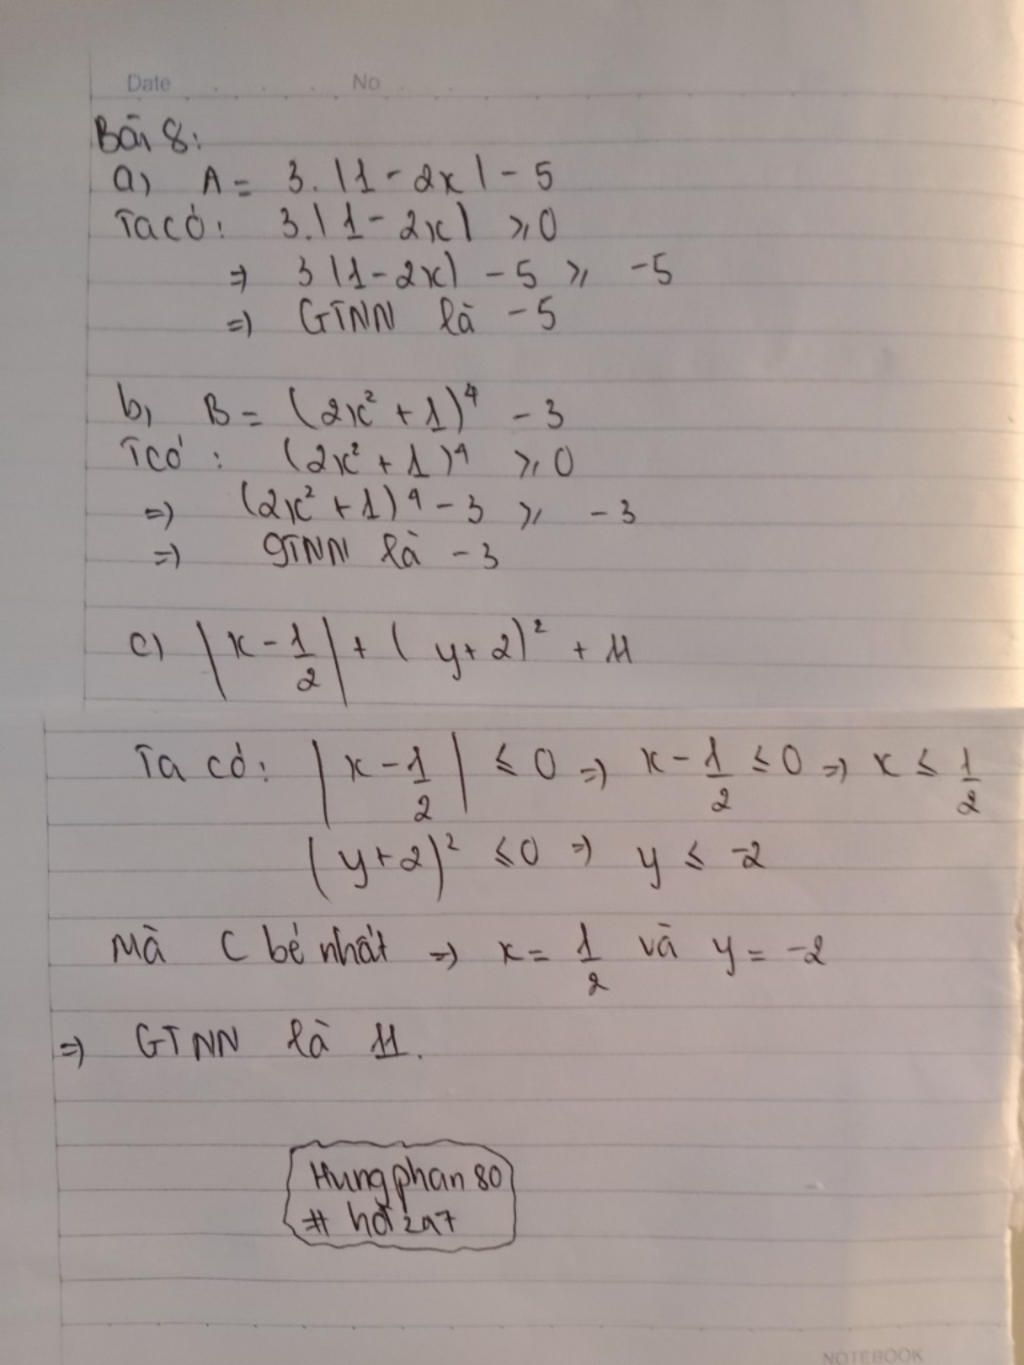 Date No
Bài 8:
a) A = 3.|1 - 2x| - 5
Ta có: 3.|1 - 2x| ⩾ 0
⇒ 3|1 - 2x| - 5 ⩾ -5
⇒ GTNN là -5
b) B = (2x² + 1)⁴ - 3
Tcó: (2x² + 1)⁴ ⩾ 0
⇒ (2x² + 1)⁴ - 3 ⩾ -3
⇒ GTNN là -3
c) |x - 1/2| + (y + 2)² + 11
Ta có: |x - 1/2| ≤ 0 ⇒ x - 1/2 ≤ 0 ⇒ x ≤ 1/2
(y + 2)² ≤ 0 ⇒ y ≤ -2
Mà C bé nhất ⇒ x = 1/2 và y = -2
⇒ GTNN là 11.
Hungphan 80
NOTEBOOK